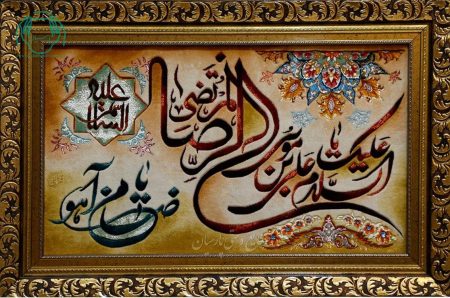 السلام علیک یا علی بن موسی الرضا المرتضی
علیه السلام
یا ضامن آهو